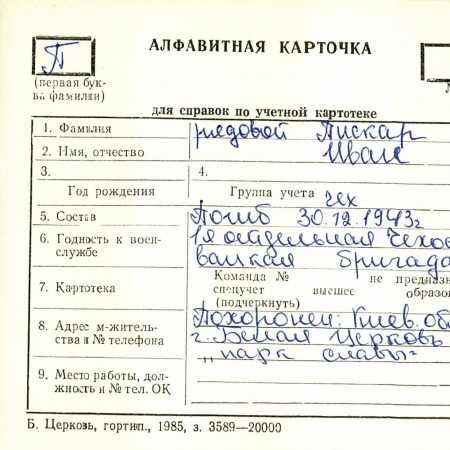 П
АЛФАВИТНАЯ КАРТОЧКА
(первая бук-
ва фамилии)
для справок по учетной картотеке
1. Фамилия рядовой Пискар
2. Имя, отчество Иван
3. 4.
Год рождения Группа учета чех
5. Состав Погиб 30.12.1943г
6. Годность к воен- 1я отдельная чехос
службе вацкая бригада
Команда № не предназн
7. Картотека спецучет высшее образо
(подчеркнуть)
8. Адрес м-житель- Похоронен: Киев. об
ства и № телефона г. Белая Церковь
„парк славы"
9. Место работы, дол-
жность и № тел. ОК
Б. Церковь, гортип., 1985, з. 3589—20000